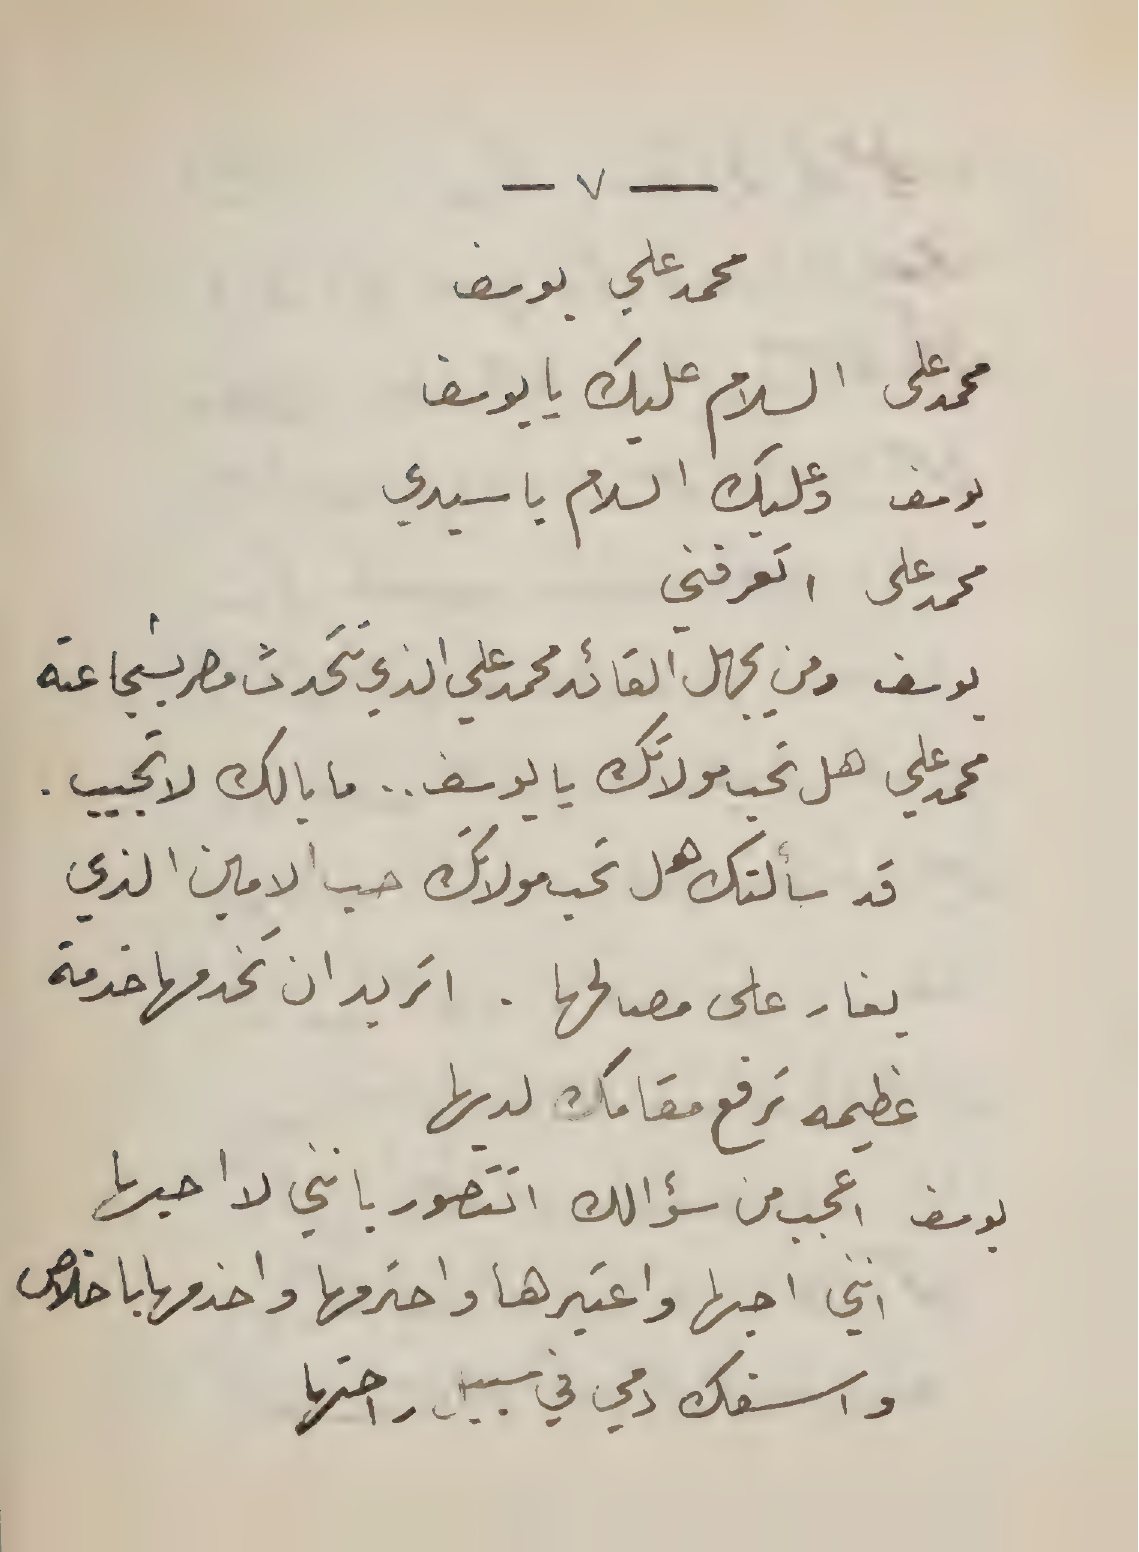 — ٧ —
محمد علي يوسف
محمد على السلام عليك يا يوسف
يوسف وعليك السلام يا سيدي
محمد على اتعرفني
يوسف ومن يجهل القائد محمد علي الذي تتحدث مصر بشجاعته
محمد علي هل تحب مولاتك يا يوسف .. ما بالك لا تجيب .
قد سألتك هل تحب مولاتك حب الامين الذي
يغار على مصالحها . اتريد ان تخدمها خدمة
عظيمه ترفع مقامك لديها
يوسف اعجب من سؤالك اتتصور بانني لا احبها
انني احبها واعتبرها واحترمها واخدمها باخلاص
واسفك دمي في سبيل راحتها